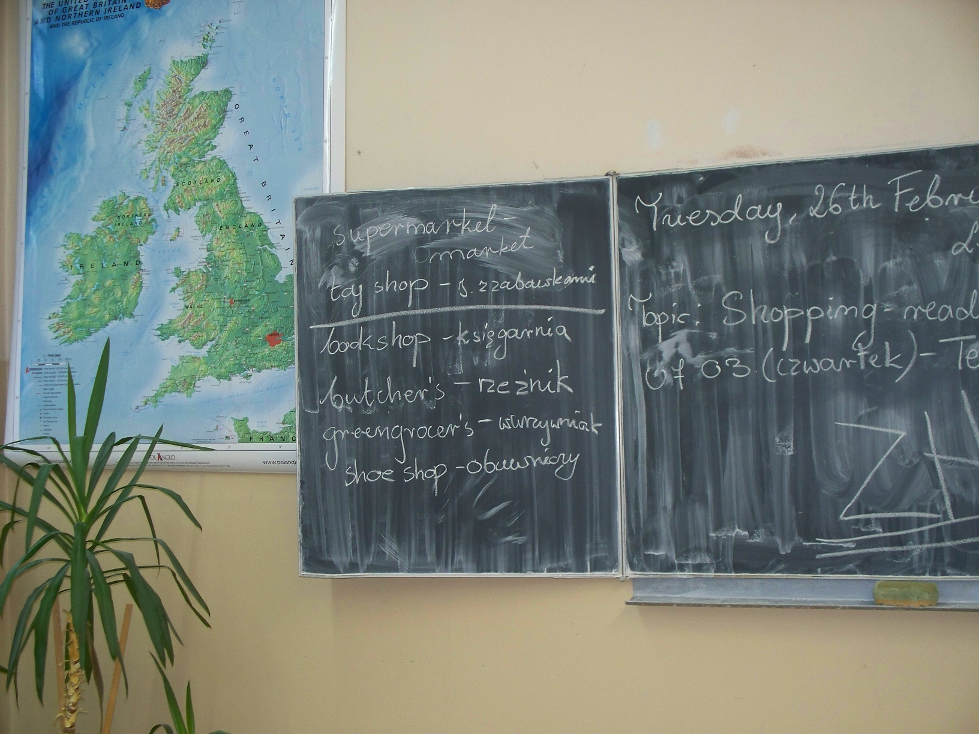 THE UNITED
OF GREAT BRITAIN
AND NORTHERN IRELAND
AND THE REPUBLIC OF IRELAND
GREAT BRITAIN
SCOTLAND
NORTHERN
IRELAND
ENGLAND
IRELAND
FRANC
supermarket
market
toy shop - s. z zabawkami
bookshop - księgarnia
butcher's - rzeźnik
greengrocer's - warzywniak
shoe shop - obuwniczy
Tuesday, 26th Febr
Topic: Shopping - read
07 03 (czwartek) - Te